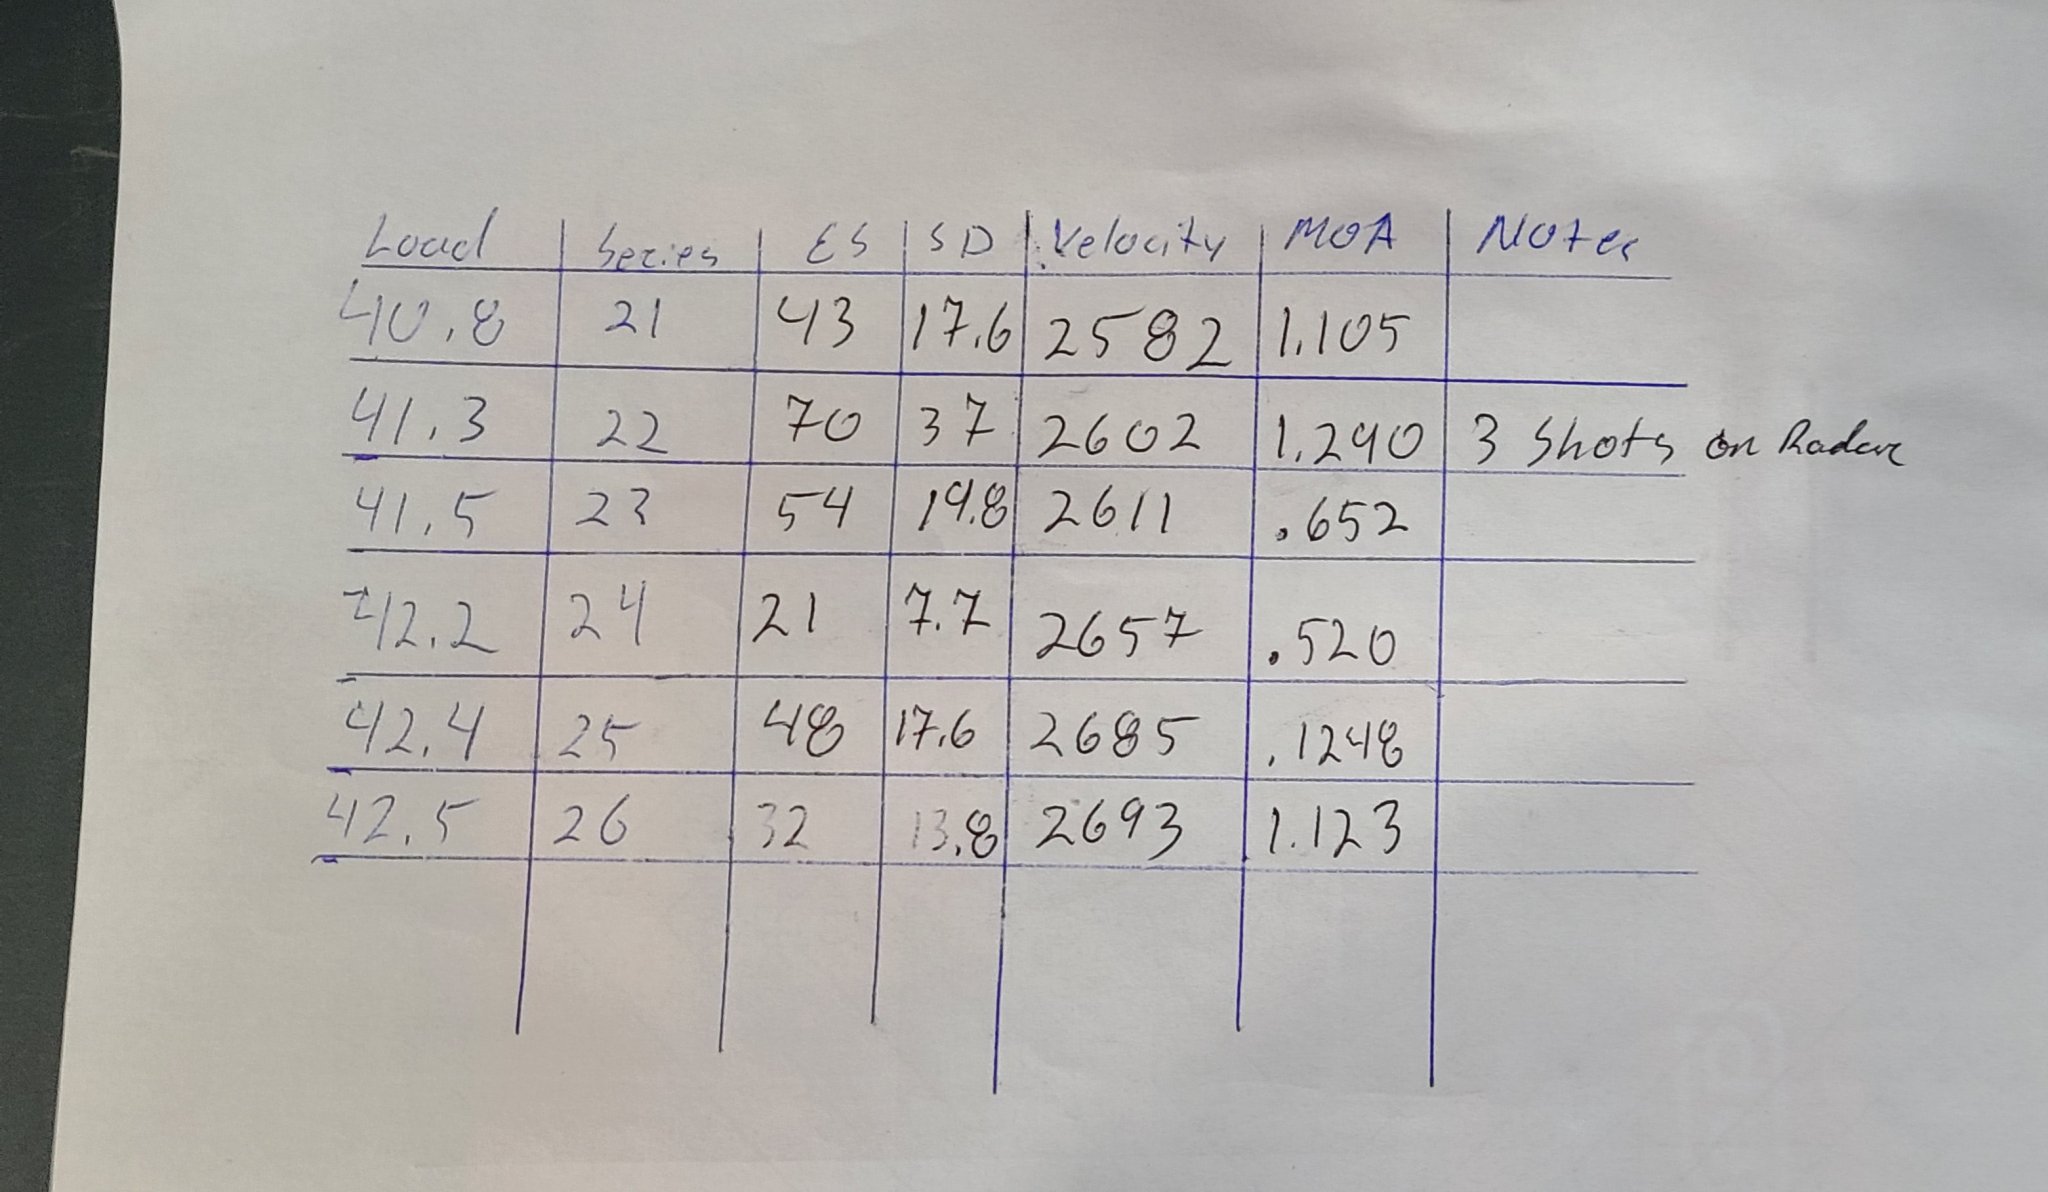 Load Series ES SD Velocity MOA Notes
40.8 21 43 17.6 2582 1.105
41.3 22 70 37 2602 1.290 3 Shots on Radar
41.5 23 54 19.8 2611 .652
42.2 24 21 7.7 2657 .520
42.4 25 48 17.6 2685 .1248
42.5 26 32 13.8 2693 1.123